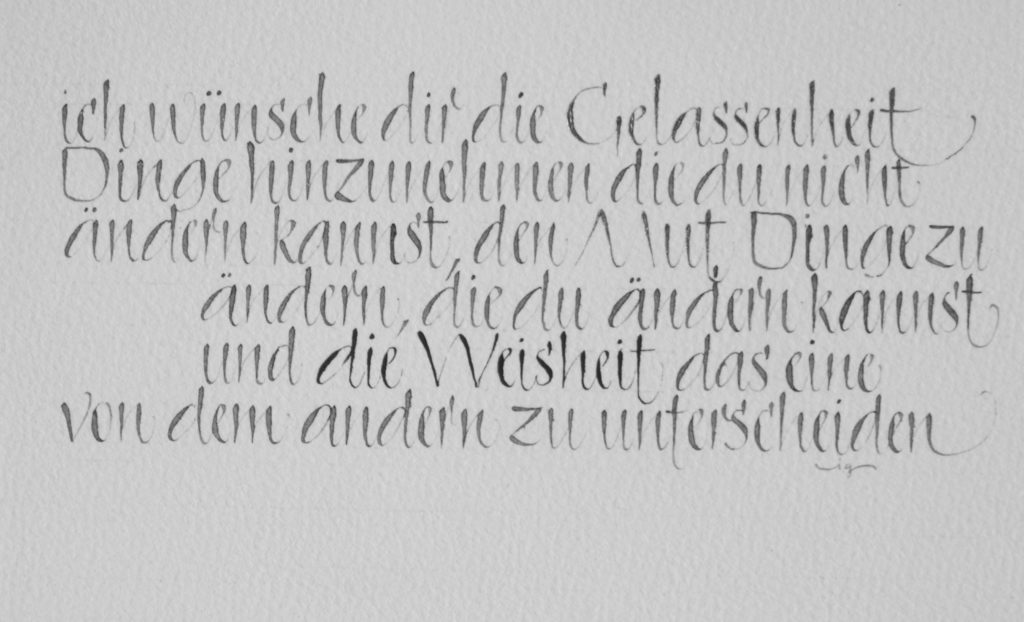 ich wünsche dir die Gelassenheit
Dinge hinzunehmen die du nicht
ändern kannst, den Mut, Dinge zu
ändern, die du ändern kannst
und die Weisheit das eine
von dem andern zu unterscheiden
ig